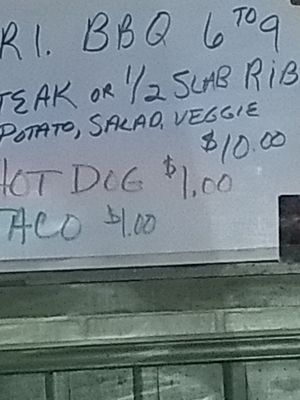 RI. BBQ 6 TO 9
TEAK OR 1/2 SLAB RIB
POTATO, SALAD, VEGGIE
$10.00
HOT DOG $1.00
TACO $1.00